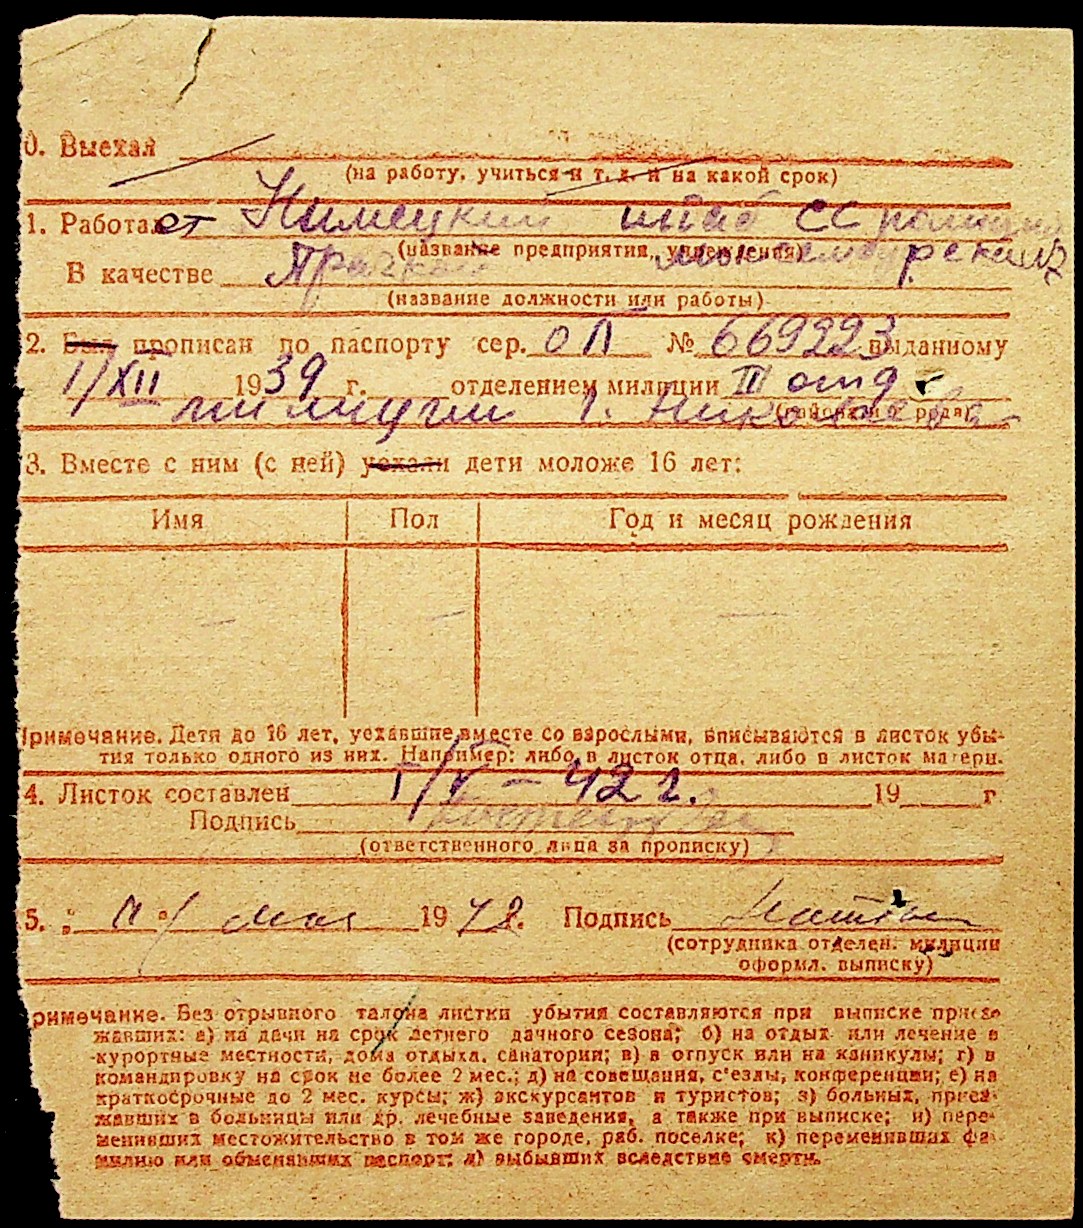 0. Выехал
(на работу, учиться и т. д. и на какой срок)
1. Работает Нимецкий штаб СС
(название предприятия, учреждения)
В качестве Прачкой
(название должности или работы)
2. Был прописан по паспорту сер. ОП № 669223 выданному
1/XII 1939 г. отделением милиции III отд
милиции г. Николаева
(район или города)
3. Вместе с ним (с ней) уехали дети моложе 16 лет:
Имя Пол Год и месяц рождения
— — —
Примечание. Дети до 16 лет, уехавшие вместе со взрослыми, вписываются в листок убы-
тия только одного из них. Например: либо в листок отца, либо в листок матери.
4. Листок составлен 1/V – 42 г. 19 г
Подпись
(ответственного лица за прописку)
5. „ мая 1942. Подпись
(сотрудника отделен. милиции
оформл. выписку)
римечание. Без отрывного талона листки убытия составляются при выписке приез-
жавших: а) на дачи на срок летнего дачного сезона; б) на отдых или лечение в
курортные местности, дома отдыха, санатории; в) в отпуск или на каникулы; г) в
командировку на срок не более 2 мес.; д) на совещания, с'езды, конференции; е) на
краткосрочные до 2 мес. курсы; ж) экскурсантов и туристов; з) больных, приез-
жавших в больницы или др. лечебные заведения, а также при выписке; и) пере-
менивших местожительство в том же городе, раб. поселке; к) переменивших фа-
милию или обменявших паспорт; л) выбывших вследствие смерти.